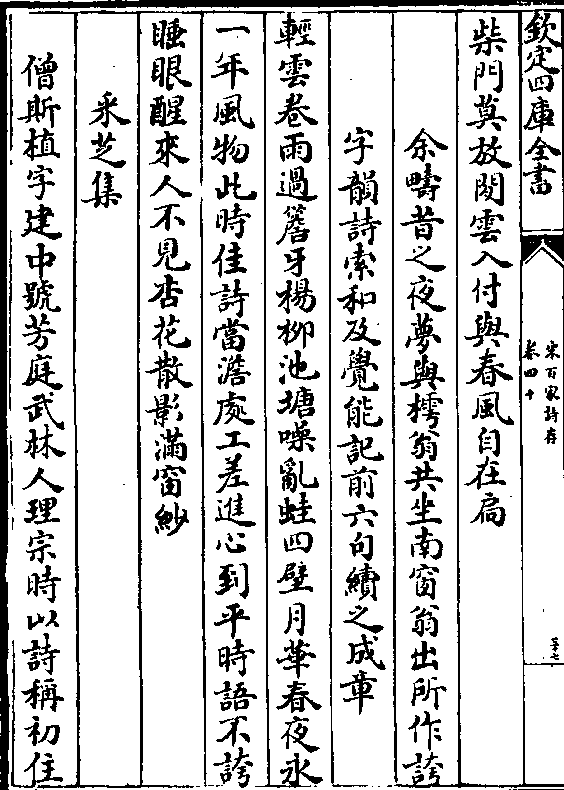 欽定四庫全書
宋百家詩存
卷四十
三十七
柴門莫放閑雲入付與春風自在扃
余疇昔之夜夢與樗翁共坐南窗翁出所作誇
字韻詩索和及覺能記前六句續之成章
輕雲卷雨過簷牙楊柳池塘噪亂蛙四壁月華春夜永
一年風物此時佳詩當澹處工差進心到平時語不誇
睡眼醒來人不見杏花散影滿窗紗
采芝集
僧斯植字建中號芳庭武林人理宗時以詩稱初住